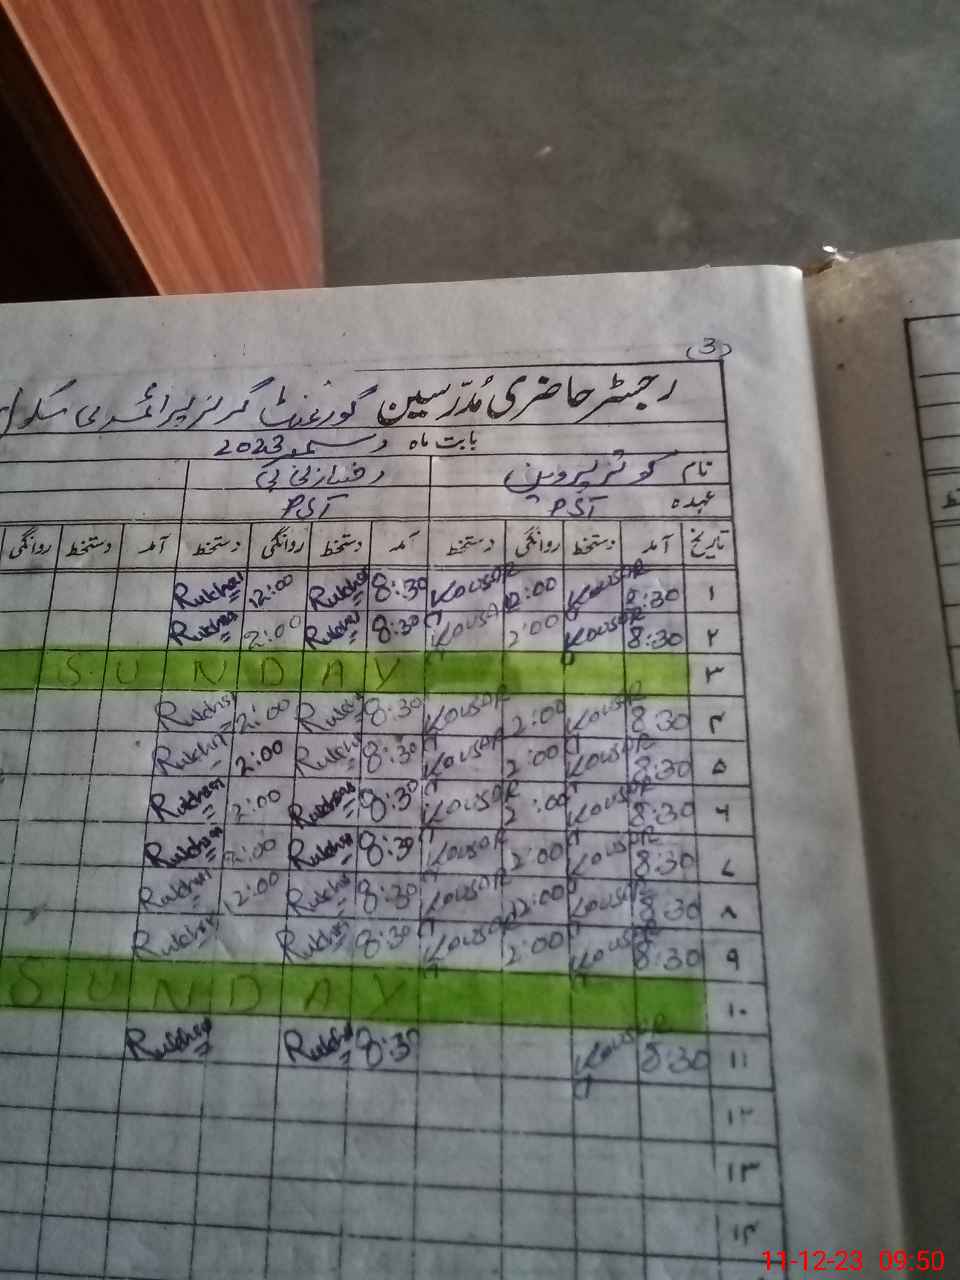 (3)
رجسٹر حاضری مُدرّسین گورنمنٹ گرلز پرائمری سکول
بابت ماہ دسمبر 2023
نام کوثر پروین رخسانہ بی بی
عہدہ PST PST
تاریخ آمد دستخط روانگی دستخط آمد دستخط روانگی دستخط آمد دستخط روانگی
۱ 8:30 Kousar 12:00 Kousar 8:30 Rukhsa 12:00 Rukhsa
۲ 8:30 Kousar 2:00 Kousar 8:30 Rukhsa 2:00 Rukhsa
۳ SUNDAY
۴ 8:30 Kousar 2:00 Kousar 8:30 Rukhsa 2:00 Rukhsa
۵ 8:30 Kousar 2:00 Kousar 8:30 Rukhsa 2:00 Rukhsa
۶ 8:30 Kousar 2:00 Kousar 8:30 Rukhsa 2:00 Rukhsa
۷ 8:30 Kousar 2:00 Kousar 8:30 Rukhsa 2:00 Rukhsa
۸ 8:30 Kousar 12:00 Kousar 8:30 Rukhsa 12:00 Rukhsa
۹ 8:30 Kousar 2:00 Kousar 8:30 Rukhsa Rukhsa
۱۰ SUNDAY
۱۱ 8:30 Kousar 8:30 Rukhsa Rukhsa
۱۲
۱۳
۱۴
11-12-23 09:50